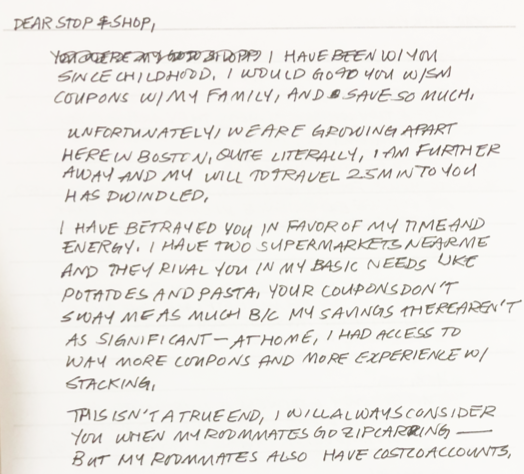 DEAR STOP & SHOP,
I HAVE BEEN W/ YOU
SINCE CHILDHOOD. I WOULD GO TO YOU W/ SM
COUPONS W/ MY FAMILY, AND SAVE SO MUCH.
UNFORTUNATELY, WE ARE GROWING APART
HERE IN BOSTON, QUITE LITERALLY, I AM FURTHER
AWAY AND MY WILL TO TRAVEL 25 MIN TO YOU
HAS DWINDLED.
I HAVE BETRAYED YOU IN FAVOR OF MY TIME AND
ENERGY. I HAVE TWO SUPERMARKETS NEAR ME
AND THEY RIVAL YOU IN MY BASIC NEEDS LIKE
POTATOES AND PASTA, YOUR COUPONS DON'T
SWAY ME AS MUCH B/C MY SAVINGS THERE AREN'T
AS SIGNIFICANT — AT HOME, I HAD ACCESS TO
WAY MORE COUPONS AND MORE EXPERIENCE W/
STACKING.
THIS ISN'T A TRUE END, I WILL ALWAYS CONSIDER
YOU WHEN MY ROOMMATES GO ZIPCARRING —
BUT MY ROOMMATES ALSO HAVE COSTCO ACCOUNTS.